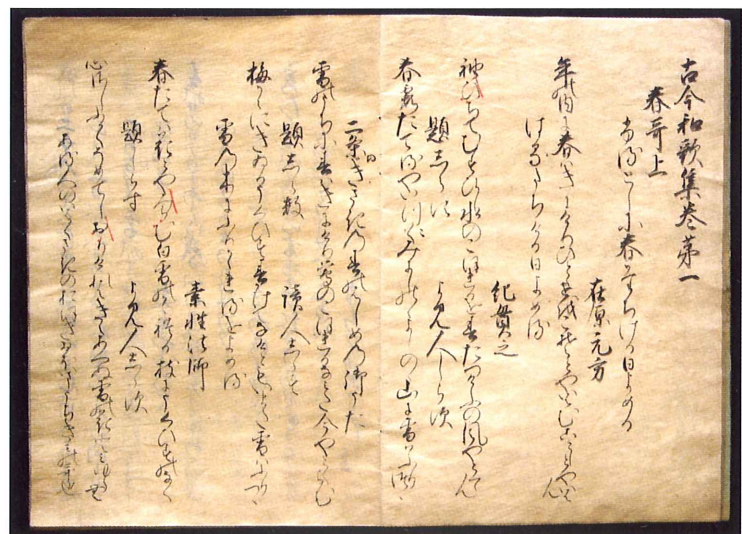 古今和歌集巻第一
春哥上
ふるとしに春たちける日よめる
在原元方
年の内に春はきにけりひとゝせをこそとやいはむことしとやいはん
はるたちける日よめる
紀貫之
袖ひちてむすひし水のこほれるを春たつけふの風やとくらん
題しらす　よみ人しらす
春霞たてるやいつこみよしのゝよしのゝ山に雪はふりつゝ
二条のきさきの春のはしめの御うた
雪のうちに春はきにけり鶯のこほれるなみた今やとくらむ
題しらす　読人しらす
梅かえにきゐるうくひす春かけてなけともいまた雪はふりつゝ
雪の木にふりかゝれるをよめる
素性法師
春たては花とやみらむ白雪のかゝれる枝にうくひすのなく
題しらす　よみ人しらす
心さしふかくそめてしおりけれはきえあへぬ雪の花とみゆらむ
ある人のいはくさきのおほきおほいまうちきみの